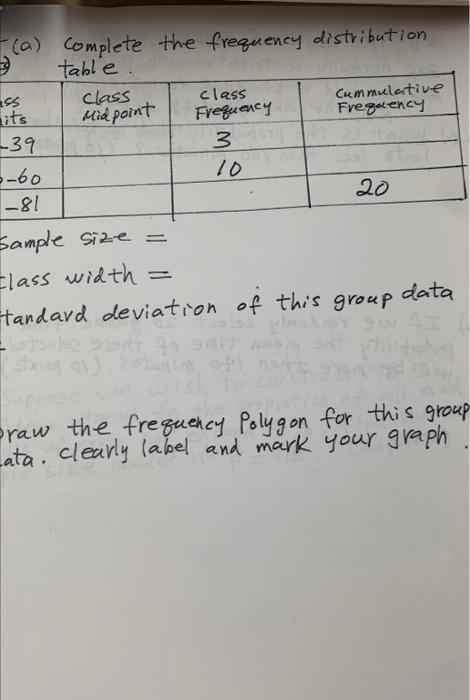 (a) Complete the frequency distribution
table.
ass
its
Class
Midpoint
Class
Frequency
Cummulative
Frequency
-39
3
-60
10
-81
20
Sample size =
Class width =
tandard deviation of this group data
raw the frequency Polygon for this group
ata. clearly label and mark your graph.